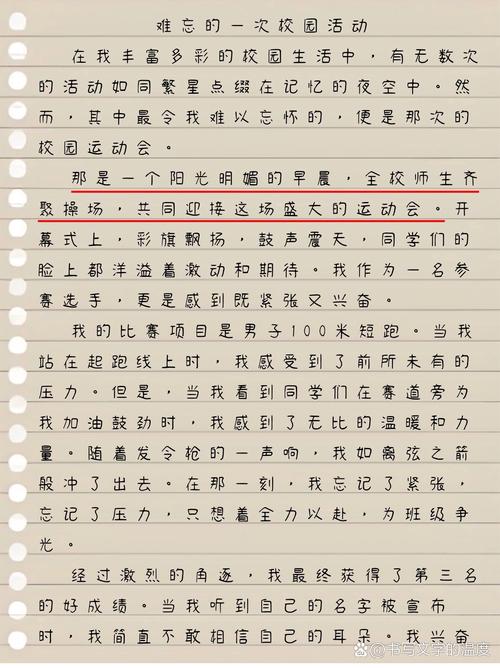 难忘的一次校园活动
在我丰富多彩的校园生活中，有无数次
的活动如同繁星点缀在记忆的夜空中。然
而，其中最令我难以忘怀的，便是那次的
校园运动会。
那是一个阳光明媚的早晨，全校师生齐
聚操场，共同迎接这场盛大的运动会。开
幕式上，彩旗飘扬，鼓声震天，同学们的
脸上都洋溢着激动和期待。我作为一名参
赛选手，更是感到既紧张又兴奋。
我的比赛项目是男子100米短跑。当我
站在起跑线上时，我感受到了前所未有的
压力。但是，当我看到同学们在赛道旁为
我加油鼓劲时，我感到了无比的温暖和力
量。随着发令枪的一声响，我如离弦之箭
般冲了出去。在那一刻，我忘记了紧张，
忘记了压力，只想着全力以赴，为班级争
光。
经过激烈的角逐，我最终获得了第三名
的好成绩。当我听到自己的名字被宣布
时，我简直不敢相信自己的耳朵。我兴奋
书写文学的温度